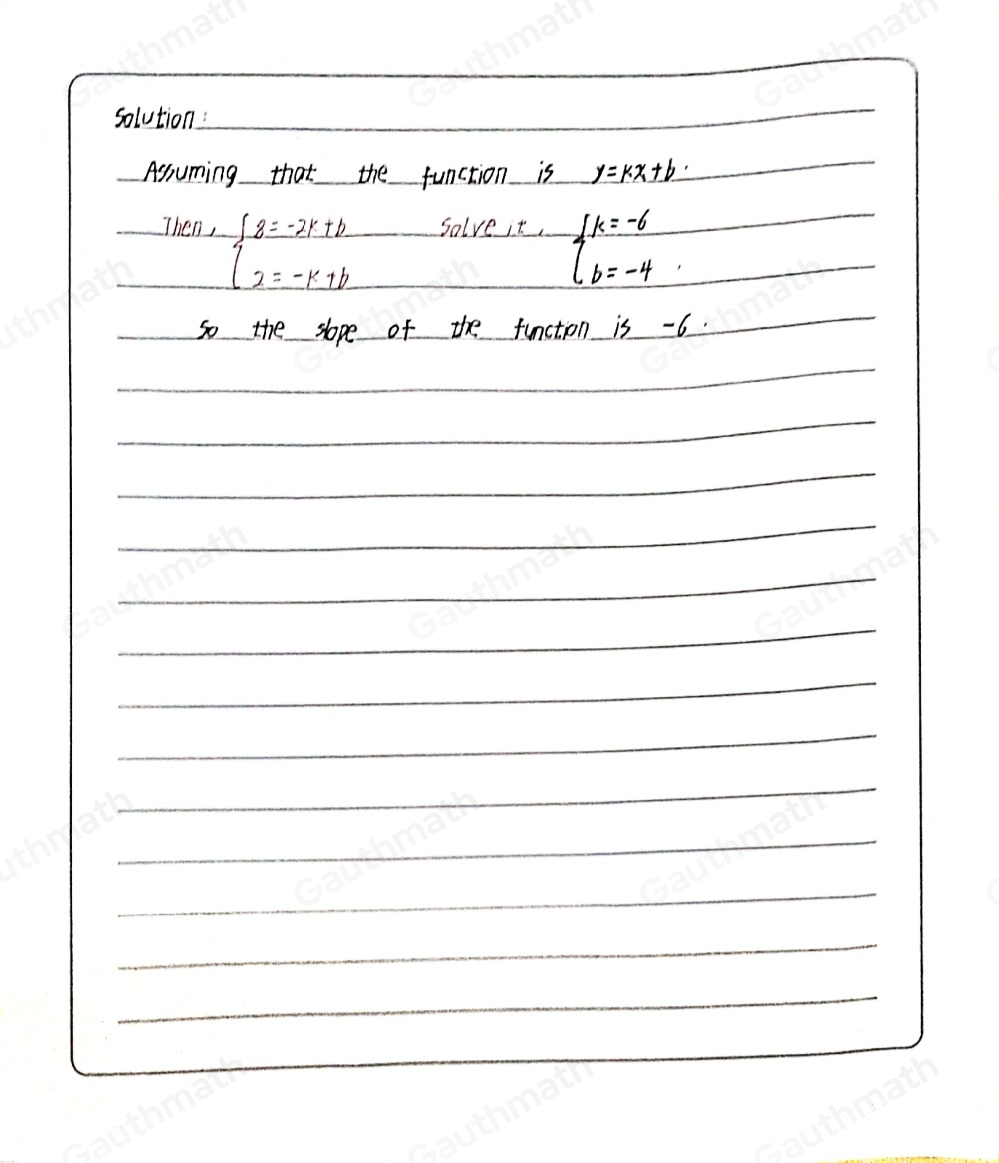 Solution:
Assuming that the function is y=kx+b.
Then, { 8=-2k+b Solve it, { k=-6
2=-k+b b=-4.
So the slope of the function is -6.
Gauthmath